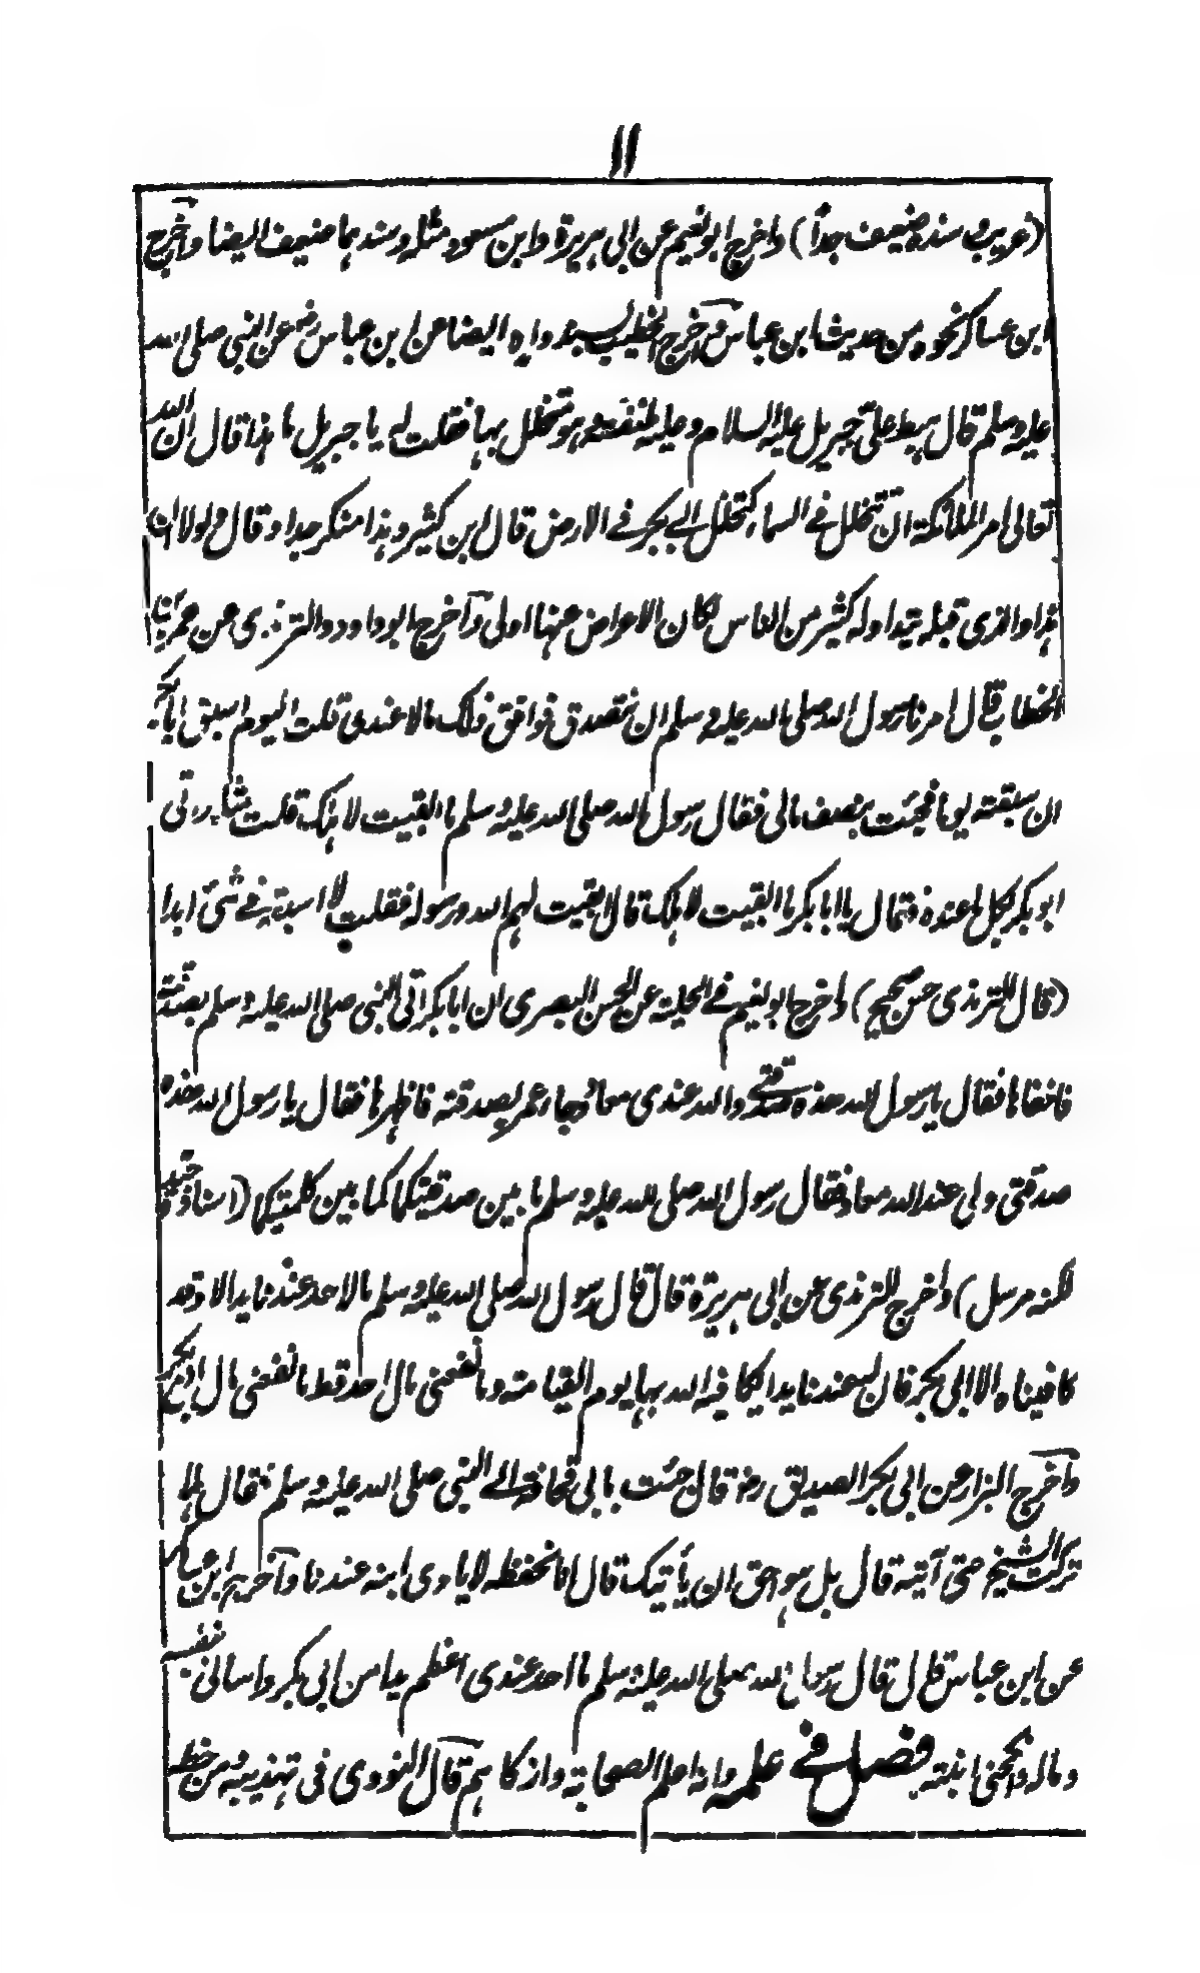 ١١
(غريب وسنده ضعيف جداً) واخرج ابو نعيم عن ابى هريرة وابن مسعود مثله وسندهما ضعيف ايضا واخرج
ابن عساكر نحوه من حديث ابن عباس واخرج الخطيب بسند واه ايضا عن ابن عباس رض عن النبى صلى الله
عليه وسلم قال هبط على جبريل عليه السلام وعليه طنفسة وهو متخلل بها فقلت له يا جبريل ما هذا قال ان الله
تعالى امر الملائكة ان تتخلل فى السماء كتخلل ابى بكر فى الارض قال ابن كثير وهذا منكر جدا وقال ولولا ان
هذا والذى قبله يتداوله كثير من الناس لكان الاعراض عنهما اولى واخرج ابو داود والترمذى عن عمر بن
الخطاب قال امرنا رسول الله صلى الله عليه وسلم ان نتصدق فوافق ذلك مالا عندى قلت اليوم اسبق ابا بكر
ان سبقته يوما فجئت بنصف مالى فقال رسول الله صلى الله عليه وسلم ما ابقيت لاهلك قلت مثله واتى
ابو بكر بكل ما عنده فقال يا ابا بكر ما ابقيت لاهلك قال ابقيت لهم الله ورسوله فقلت لا اسبقه فى شئ ابدا
(قال الترمذى حسن صحيح) واخرج ابو نعيم فى الحلية عن الحسن البصرى ان ابا بكر اتى النبى صلى الله عليه وسلم بصدقته
فاخفاها فقال يا رسول الله هذه صدقتى ولله عندى معاد وجاء عمر بصدقته فاظهرها فقال يا رسول الله هذه
صدقتى ولى عند الله معاد فقال رسول الله صلى الله عليه وسلم ما بين صدقتيكما كما بين كلمتيكما (اسناده جيد
لكنه مرسل) واخرج الترمذى عن ابى هريرة قال قال رسول الله صلى الله عليه وسلم ما لاحد عندنا يد الا وقد
كافيناه الا ابى بكر فان له عندنا يدا يكافيه الله بها يوم القيامة وما نفعنى مال احد قط ما نفعنى مال ابى بكر
واخرج البزار عن ابى بكر الصديق رض قال جئت بابى قحافة الى النبى صلى الله عليه وسلم فقال هلا
تركت الشيخ حتى آتيه قال بل هو احق ان يأتيك قال انا نحفظه لايادى ابنه عندنا واخرج ابن عساكر
عن ابن عباس قال قال رسول الله صلى الله عليه وسلم ما احد عندى اعظم يدا من ابى بكر واسانى بنفسه
وماله وانكحنى ابنته فصل فى علمه وانه اعلم الصحابة وازكاهم قال النووى فى تهذيبه ومن خطه